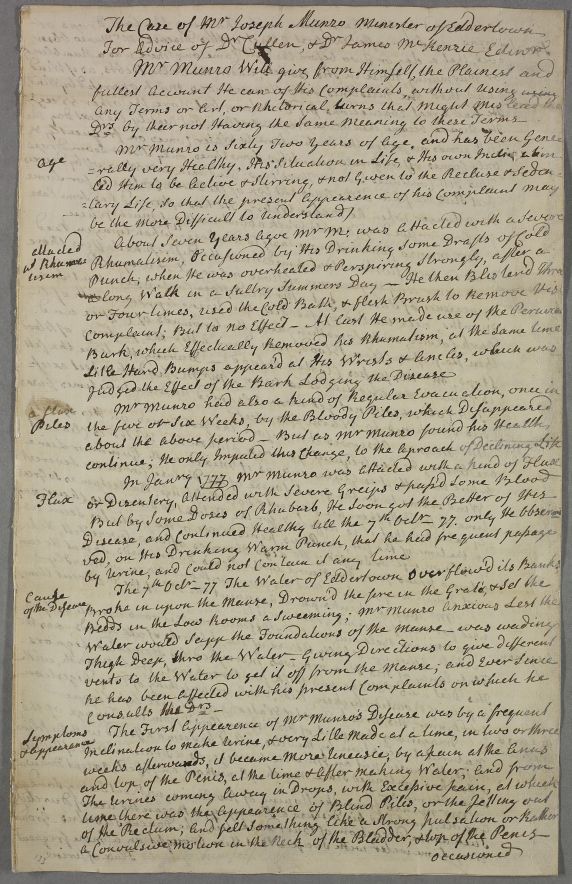 The Case of Mr Joseph Munro Minester of Eddertown
For Advice of Dr Cullen, & Dr James McKenzie Edinr.
Mr Munro Will give from Himself, the Plainest and
fullest Account He can of his Complaints, without Using
any Terms of Art, or Rhetorical turns that might the
Drs by their not Having the Same Meaning to these Terms
Age
Mr Munro is Sixty Two Years of age, and has been Gene
=rally very Healthy, His Situation in Life, & His own
led Him to be Active & Stirring, & not Given to the Recluse & Seden=
=tary Life, so that the present Appearance of his Complaint may
be the More Difficult to Understand/
attacted
wt Rhuma
tisim
About Seven Years agoe Mr M: was attacted with a Severe
Rhumatisim, Occasioned by His Drinking Some Drafts of Cold
Punch, when He was overheated & Perspiring Strongly, after a
long Walk in a Sultry Summers Day — He then Blisterd three
or Four times, used the Cold Bath, & flesh Brush to Remove His
Complaint; But to no Effect — At Last He made use of the Peruvian
Bark, which Effectually Removed his Rhumatism, at the Same time
Little Hard Bumps appeard at His Wrists & Ancles, which was
Judged the Effect of the Bark Lodging the Disease
Piles
Mr Munro had also a kind of Regular Evacuation, once in
the five or Six Weeks, by the Bloody Piles, which Disappeared
about the above period — But as Mr Munro found his Health
continue; He only Imputed this Change, to the Aproach of Declining Life
Flux
In Janry 177 Mr Munro was attacted with a kind of Flux
or Disentery, Attended with Severe Greips & passd Some Blood
But by Some Doses of Rhubarb, He Soon got the Better of His
Disease, and Continued Healthy till the 7th Octr 77. only He obser
ved, on His Drinking Warm Punch, that he had frequent passage
by Urine, and Could not Contain it any time
Cause
of the Disease
The 7th Octr 77 The Water of Eddertown Overflow'd its Banks
Broke in upon the Manse, Drown'd the fire in the Grate, & Set the
Bedds in the Low Rooms a Sweeming; Mr Munro Anxious Lest the
Water would Sapp the Foundations of the Manse was wading
Thigh Deep, thro the Water — Giving Directions to give different
vents to the Water to get it off from the Manse; and Ever Sence
he has been affected with his present Complaints on which he
Consults the Drs —
Symptoms
& appearance
The First Appearence of Mr Munro's Disease was by a frequent
Inclination to make Urine, & very Little Made at a time, in two or three
weeks afterwards, it became More Uneasie; by a pain at the Anus
and top of the Penis, at the time & after making Water; and from
The Urines coming Away in Drops, with Excessive pain, at which
time there was the Appearence of Blind Piles, or the Jetting out
of the Rectum; and felt Something Like a Strong pulsation or Rather
a Convulsive motion in the Neck of the Bladder, & top of the Penis
occasioned